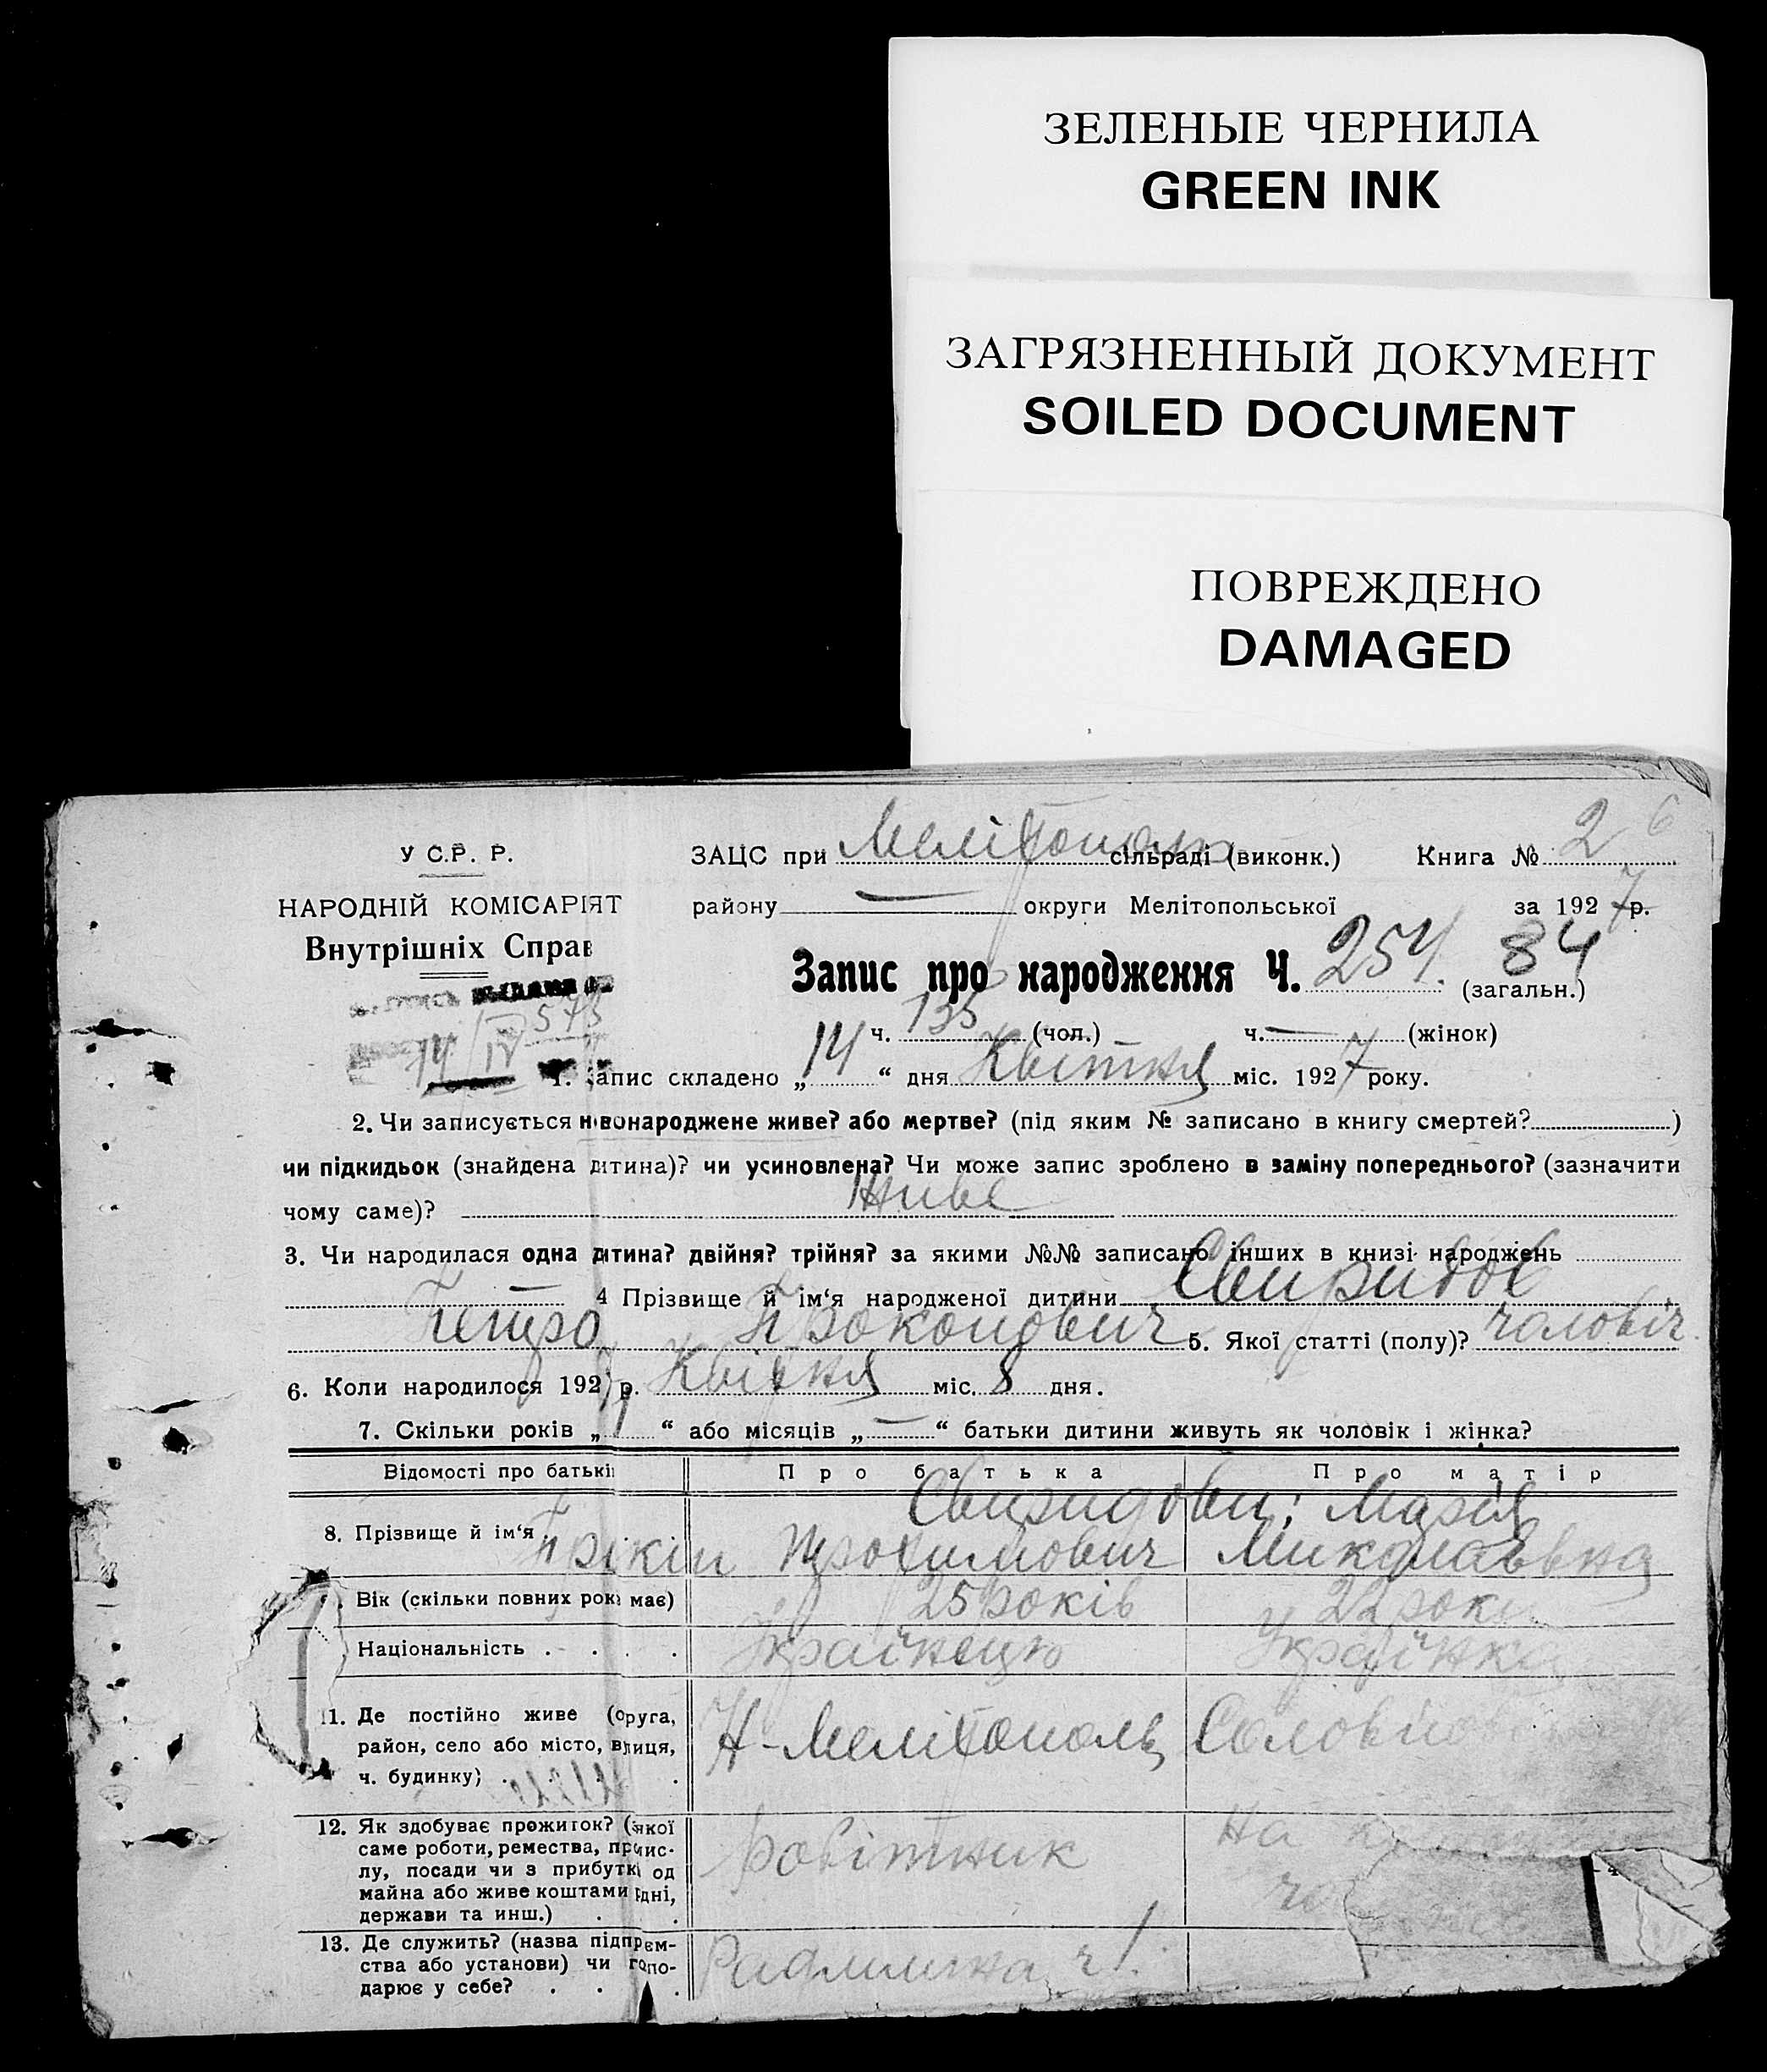 ЗЕЛЕНЫЕ ЧЕРНИЛА
GREEN INK
ЗАГРЯЗНЕННЫЙ ДОКУМЕНТ
SOILED DOCUMENT
ПОВРЕЖДЕНО
DAMAGED
У С.Р. Р.
НАРОДНІЙ КОМІСАРІЯТ
Внутрішніх Справ
ЗАЦС при Мелітополь сільраді (виконк.) Книга № 2 6
району — округи Мелітопольської за 1927 р.
Запис про народження Ч. 254. 84 (загальн.)
573
14/IV
ч. 135 (чол.) ч. — (жінок)
1. Запис складено „14“ дня Квітня міс. 1927 року.
2. Чи записується новонароджене живе? або мертве? (під яким № записано в книгу смертей? )
чи підкидьок (знайдена дитина)? чи усиновлена? Чи може запис зроблено в заміну попереднього? (зазначити
чому саме)? живе
3. Чи народилася одна дитина? двійня? трійня? за якими №№ записано інших в книзі народжень
4 Прізвище й ім‘я народженої дитини Свиридов
Петро Прокопович 5. Якої статті (полу)? чоловіч.
6. Коли народилося 1927 р. Квітня міс. 8 дня.
7. Скільки років „1“ або місяців „—“ батьки дитини живуть як чоловік і жінка?
Відомості про батьків Про батька Про матір
8. Прізвище й ім‘я . Свиридови: Марія
Прокіп Трохимович Миколаевна
Вік (скільки повних років має) 25 років 22 роки
Національність . . . . Українець Українка
11. Де постійно живе (округа,
район, село або місто, вулиця,
ч. будинку) . . . Н-Мелітополь
12. Як здобуває прожиток? (якої
саме роботи, ремества, промис-
лу, посади чи з прибутків од
майна або живе коштами рідні,
держави та инш.) . . робітник На
13. Де служить? (назва підприєм-
ства або установи) чи госпо-
дарює у себе? . . . ч 1.